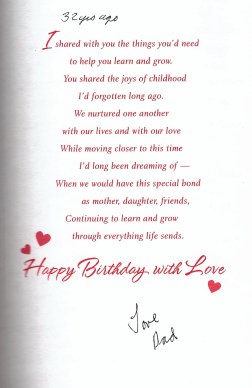 32yrs ago
I shared with you the things you'd need
to help you learn and grow.
You shared the joys of childhood
I'd forgotten long ago.
We nurtured one another
with our lives and with our love
While moving closer to this time
I'd long been dreaming of —
When we would have this special bond
as mother, daughter, friends,
Continuing to learn and grow
through everything life sends.
Happy Birthday with Love
Love
Dad